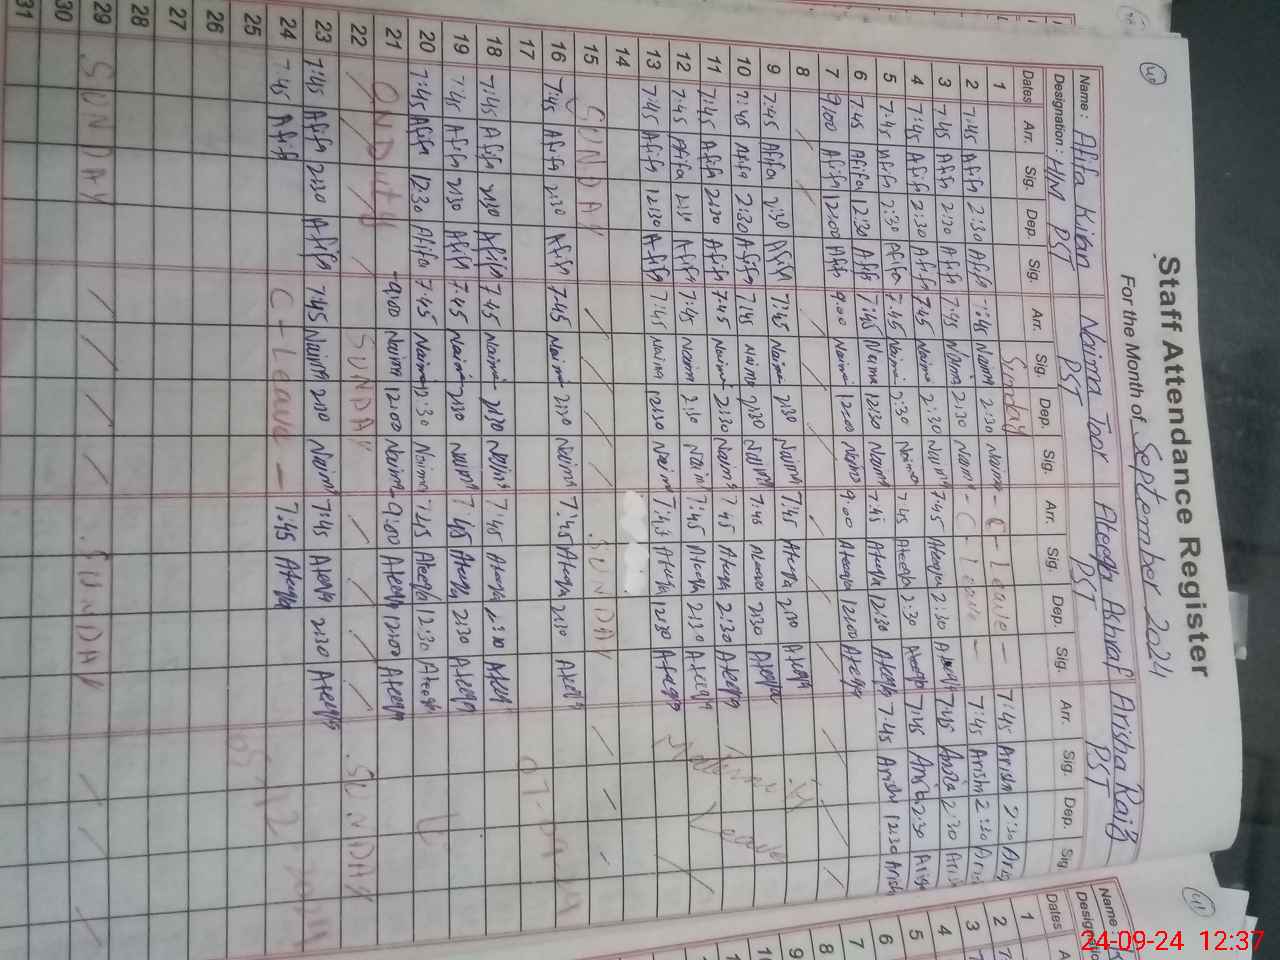 40
Staff Attendance Register
For the Month of September 2024
Name : Afifa Kiran Naima Toor Ateeqa Ashraf Arisha Raiz
Designation : HM PST PST PST PST
Dates Arr. Sig. Dep. Sig. Arr. Sig. Dep. Sig. Arr. Sig. Dep. Sig. Arr. Sig. Dep. Sig.
1 Sunday
2 7:45 Afifa 2:30 Afifa 7:45 Naima 2:30 Naima - C - Leave - 7:45 Arisha 2:30
3 7:45 Afifa 2:30 Afifa 7:45 Naima 2:30 Naima - C - Leave - 7:45 Arisha 2:30
4 7:45 Afifa 2:30 Afifa 7:45 Naima 2:30 Naima 7:45 Ateeqa 2:30 Ateeqa 7:45 Arisha 2:30
5 7:45 Afifa 2:30 Afifa 7:45 Naima 2:30 Naima 7:45 Ateeqa 2:30 Ateeqa 7:45 Arisha 2:30
6 7:45 Afifa 12:30 Afifa 7:45 Naima 12:30 Naima 7:45 Ateeqa 12:30 Ateeqa 7:45 Arisha 12:30
7 9:00 Afifa 12:00 Afifa 9:00 Naima 12:00 Naima 9:00 Ateeqa 12:00 Ateeqa
8
9 7:45 Afifa 2:30 Afifa 7:45 Naima 2:30 Naima 7:45 Ateeqa 2:30 Ateeqa
10 7:45 Afifa 2:30 Afifa 7:45 Naima 2:30 Naima 7:45 Ateeqa 2:30 Ateeqa
11 7:45 Afifa 2:30 Afifa 7:45 Naima 2:30 Naima 7:45 Ateeqa 2:30 Ateeqa
12 7:45 Afifa 2:30 Afifa 7:45 Naima 2:30 Naima 7:45 Ateeqa 2:30 Ateeqa
13 7:45 Afifa 12:30 Afifa 7:45 Naima 12:30 Naima 7:45 Ateeqa 12:30 Ateeqa
14
15 SUNDAY SUNDAY
16 7:45 Afifa 2:30 Afifa 7:45 Naima 2:30 Naima 7:45 Ateeqa 2:30 Ateeqa
17
18 7:45 Afifa 2:30 Afifa 7:45 Naima 2:30 Naima 7:45 Ateeqa 2:30 Ateeqa
19 7:45 Afifa 2:30 Afifa 7:45 Naima 2:30 Naima 7:45 Ateeqa 2:30 Ateeqa
20 7:45 Afifa 12:30 Afifa 7:45 Naima 12:30 Naima 7:45 Ateeqa 12:30 Ateeqa
21 ON Duty 9:00 Naima 12:00 Naima 9:00 Ateeqa 12:00 Ateeqa
22 SUNDAY SUNDAY
23 7:45 Afifa 2:30 Afifa 7:45 Naima 2:30 Naima 7:45 Ateeqa 2:30 Ateeqa
24 7:45 Afifa C - Leave - 7:45 Ateeqa
25
26
27
28
29 SUNDAY SUNDAY
30
31
41
Name :
Dates
1
2
3
4
5
6
7
8
9
10
24-09-24 12:37